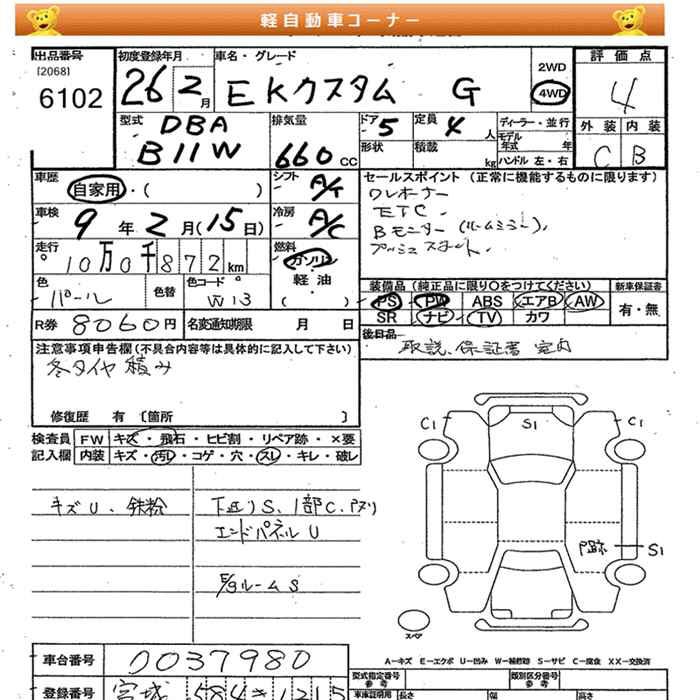 軽自動車コーナー
出品番号 初度登録年月 車名・グレード 2WD 評価点
[2068]
6102 26 2月 EKカスタム G 4WD 4
型式 DBA 排気量 ドア 5 定員 4人 ディーラー・並行 外装 内装
B11W 660cc 形状 積載 kg モデル年式 年
ハンドル 左・右 C B
車歴 自家用・( ) シフト A/T セールスポイント (正常に機能するものに限ります)
ワンオーナー
車検 9年2月(15日) 冷房 A/C ETC.
Bモニター(ルームミラー).
走行 10万0千872km 燃料 ガソリン プッシュスタート.
軽油
( )
色 パール 色替 色コード W13 装備品 (純正品に限り○をつけてください) 新車保証書
PS PW ABS エアB AW 有・無
R券 8060円 名変通知期限 月 日 SR ナビ TV カワ
注意事項申告欄 (不具合内容等は具体的に記入して下さい) 後日品 取説、保証書 室内
冬タイヤ積み
修復歴 有 〔箇所 〕
検査員 FW キズ・飛石・ヒビ割・リペア跡・×要
記入欄 内装 キズ・汚レ・コゲ・穴・スレ・キレ・破レ
C1 S1 C1
キズU、鉄粉 下廻りS、1部C、
エンドパネルU
S1
E/gルームS
スペア
A−キズ E−エクボ U−凹み W−補修跡 S−サビ C−腐食 XX−交換済
車台番号 0037980 型式指定番号 参考 類別区分番号 参考
登録番号 宮城 584 き 1215 車庫証明用 長さ 幅 高さ